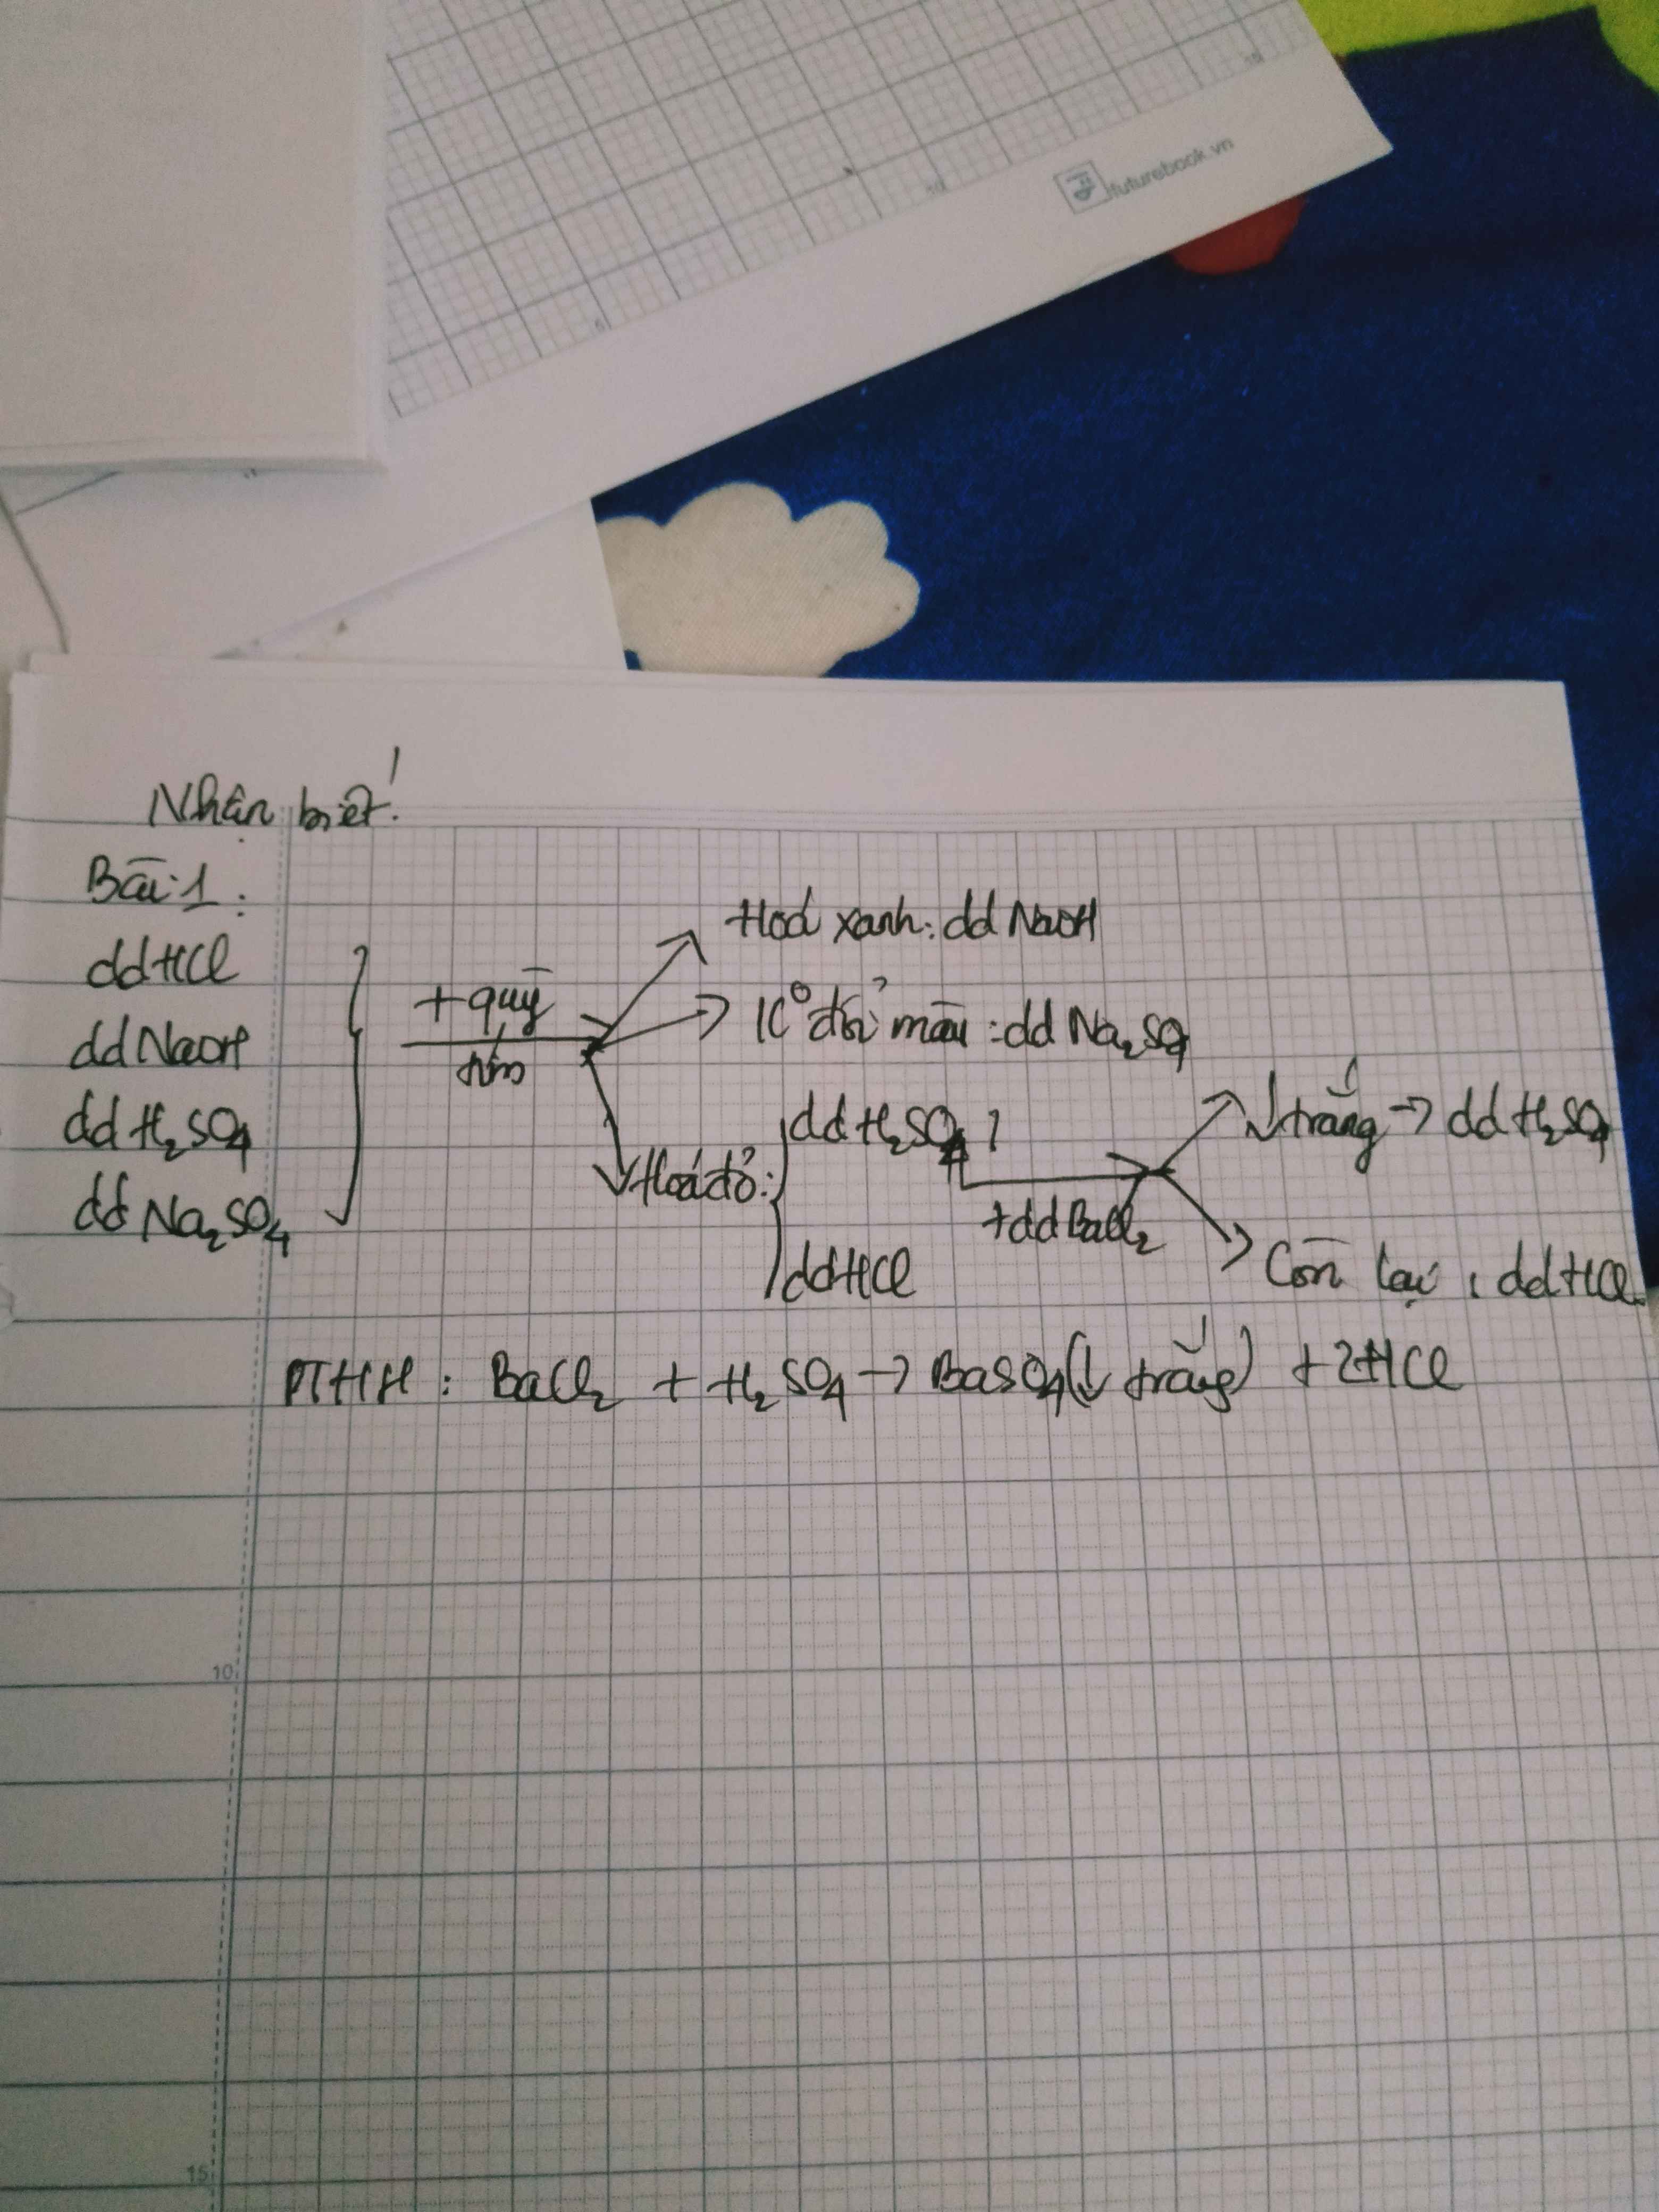 futurebook.vn
Nhận biết!
Bài 1:
dd HCl
dd NaOH
dd H₂SO₄
dd Na₂SO₄
+ quỳ
tím
Hoá xanh: dd NaOH
K° đổi màu: dd Na₂SO₄
Hoá đỏ:
dd H₂SO₄
dd HCl
+ dd BaCl₂
↓ trắng → dd H₂SO₄
Còn lại: dd HCl
PTHH: BaCl₂ + H₂SO₄ → BaSO₄(↓ trắng) + 2HCl
5
10
15
10
15